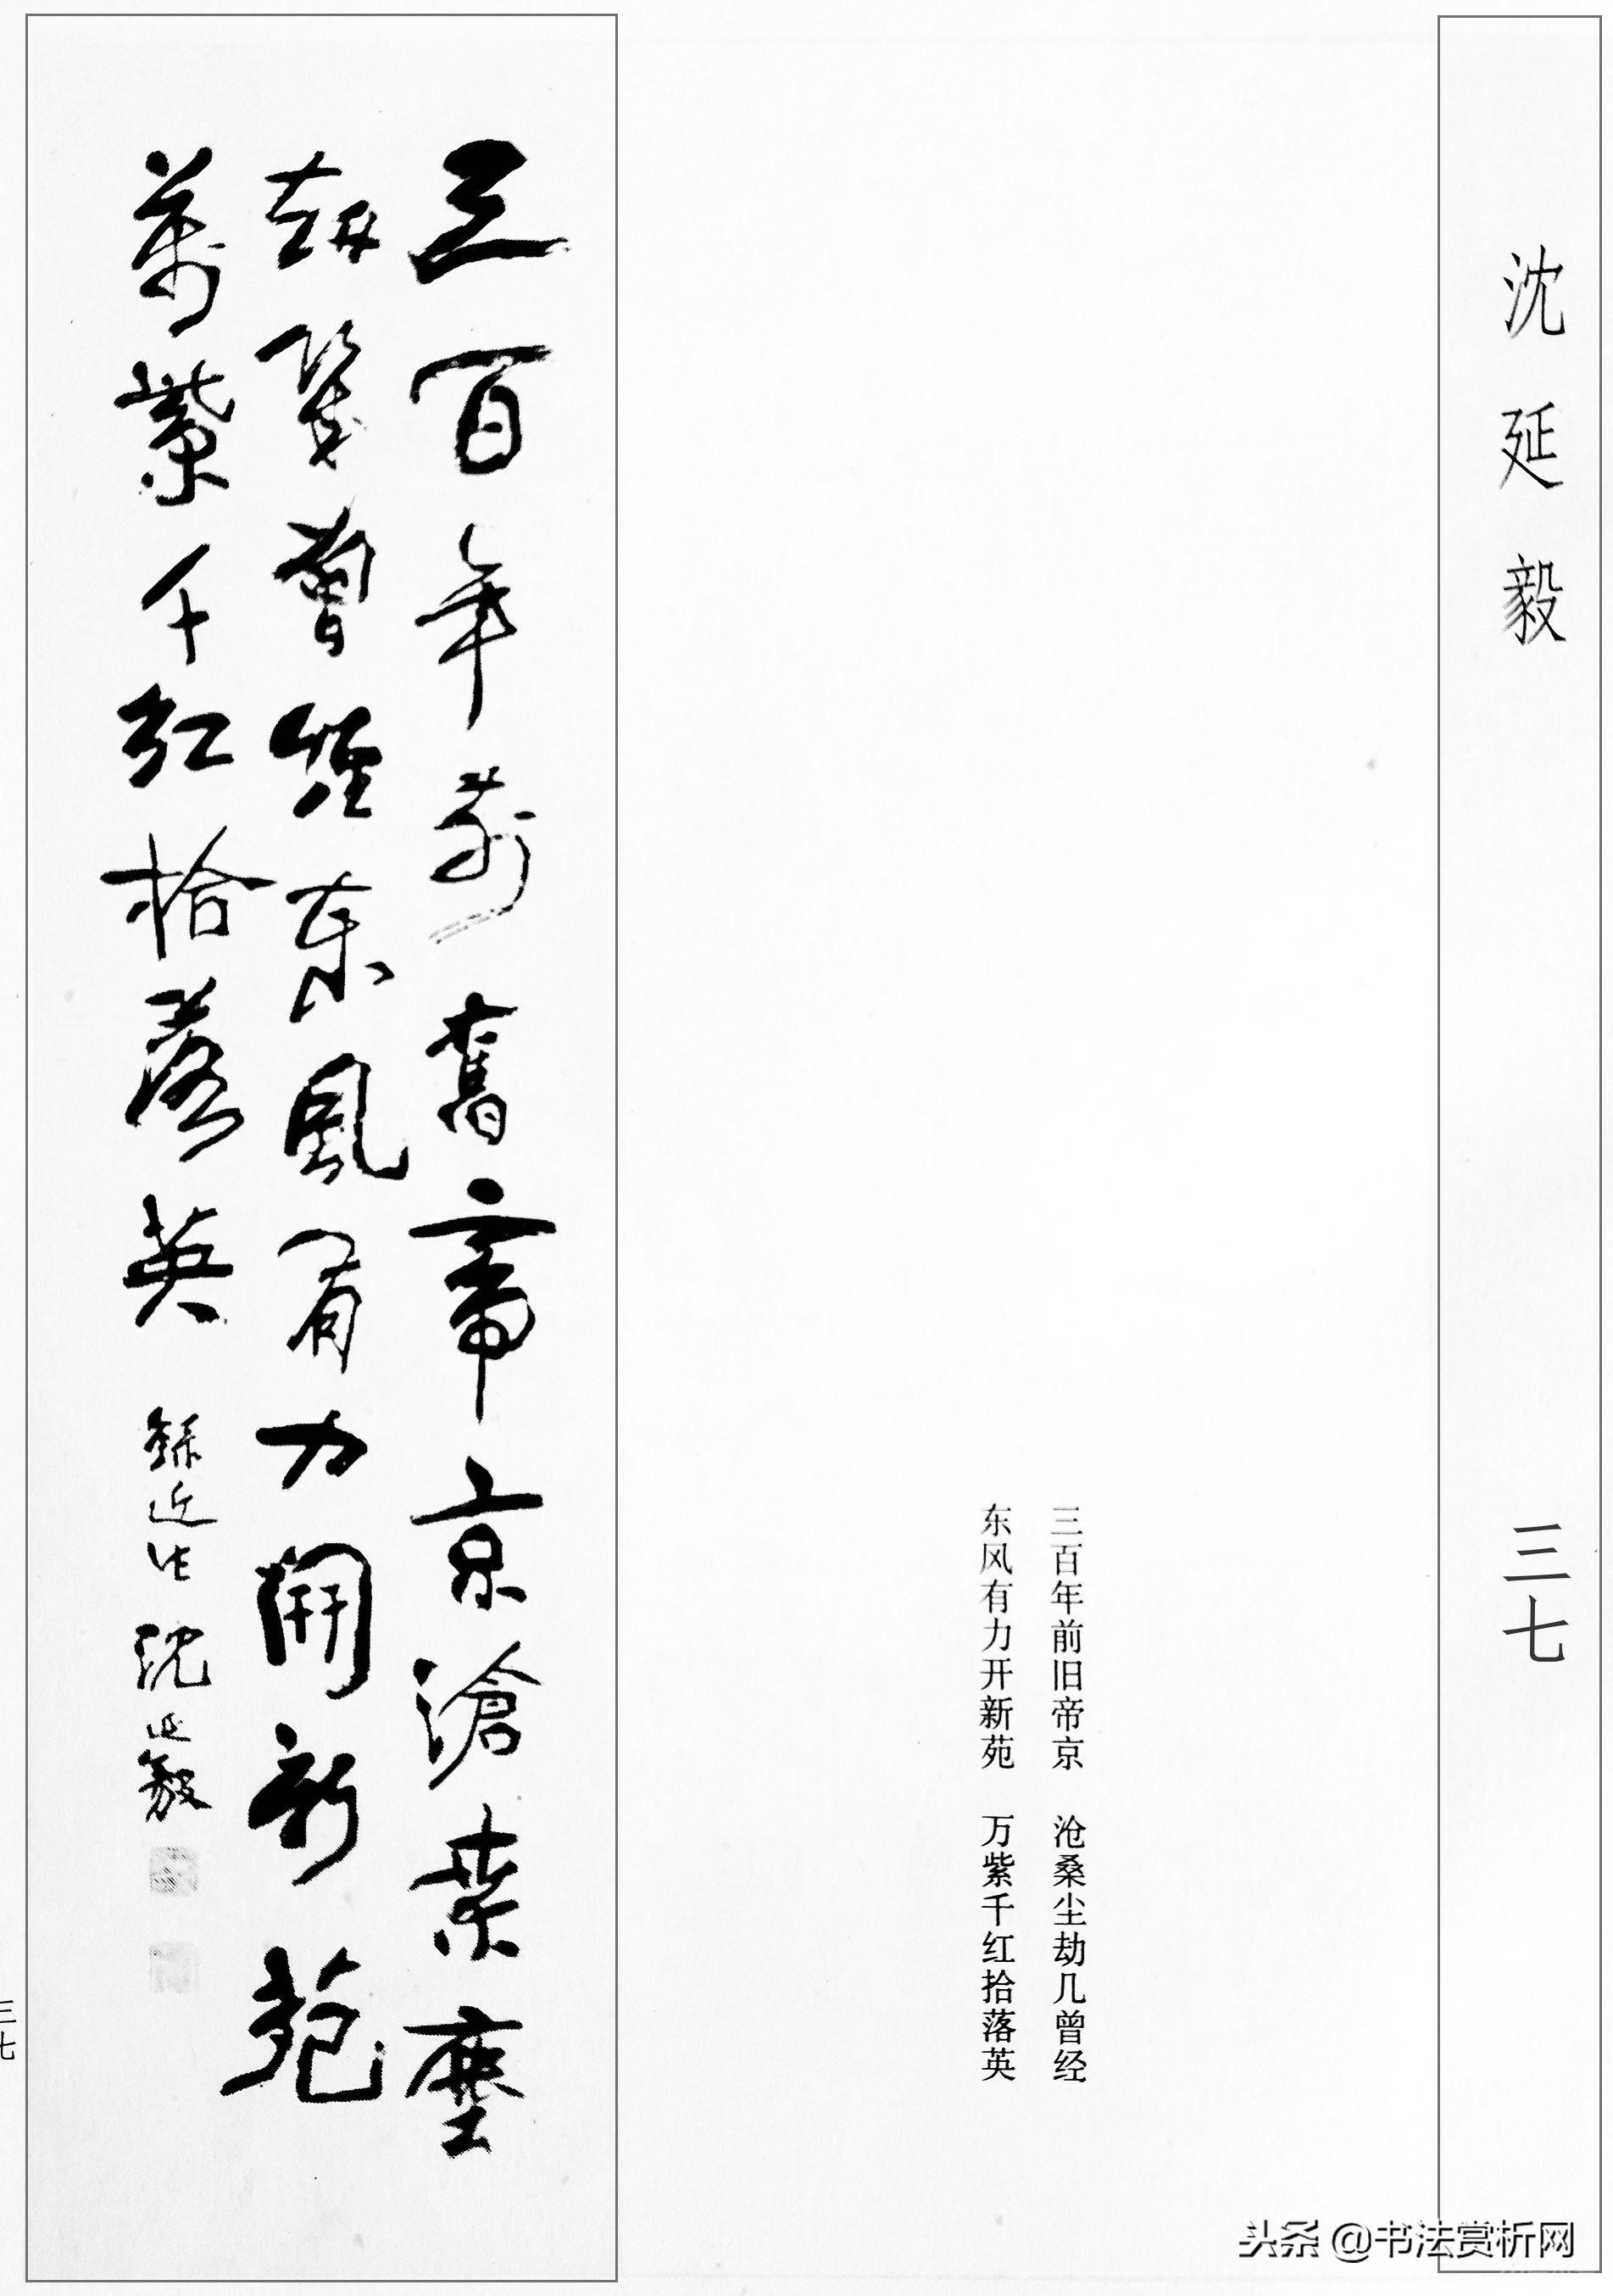 沈延毅
三七
三百年前旧帝京 沧桑尘劫几曾经
东风有力开新苑 万紫千红拾落英
三百年前舊帝京滄桑塵
劫幾曾經東風有力開新苑
萬紫千紅拾落英 錄近作 沈延毅
三七
头条 @书法赏析网